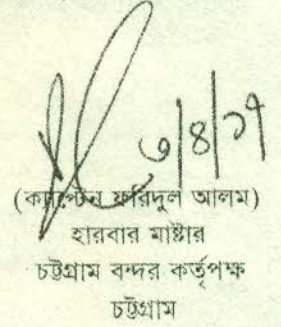 ৩/৪/১৭
(ক্যাপ্টেন ফরিদুল আলম)
হারবার মাষ্টার
চট্টগ্রাম বন্দর কর্তৃপক্ষ
চট্টগ্রাম